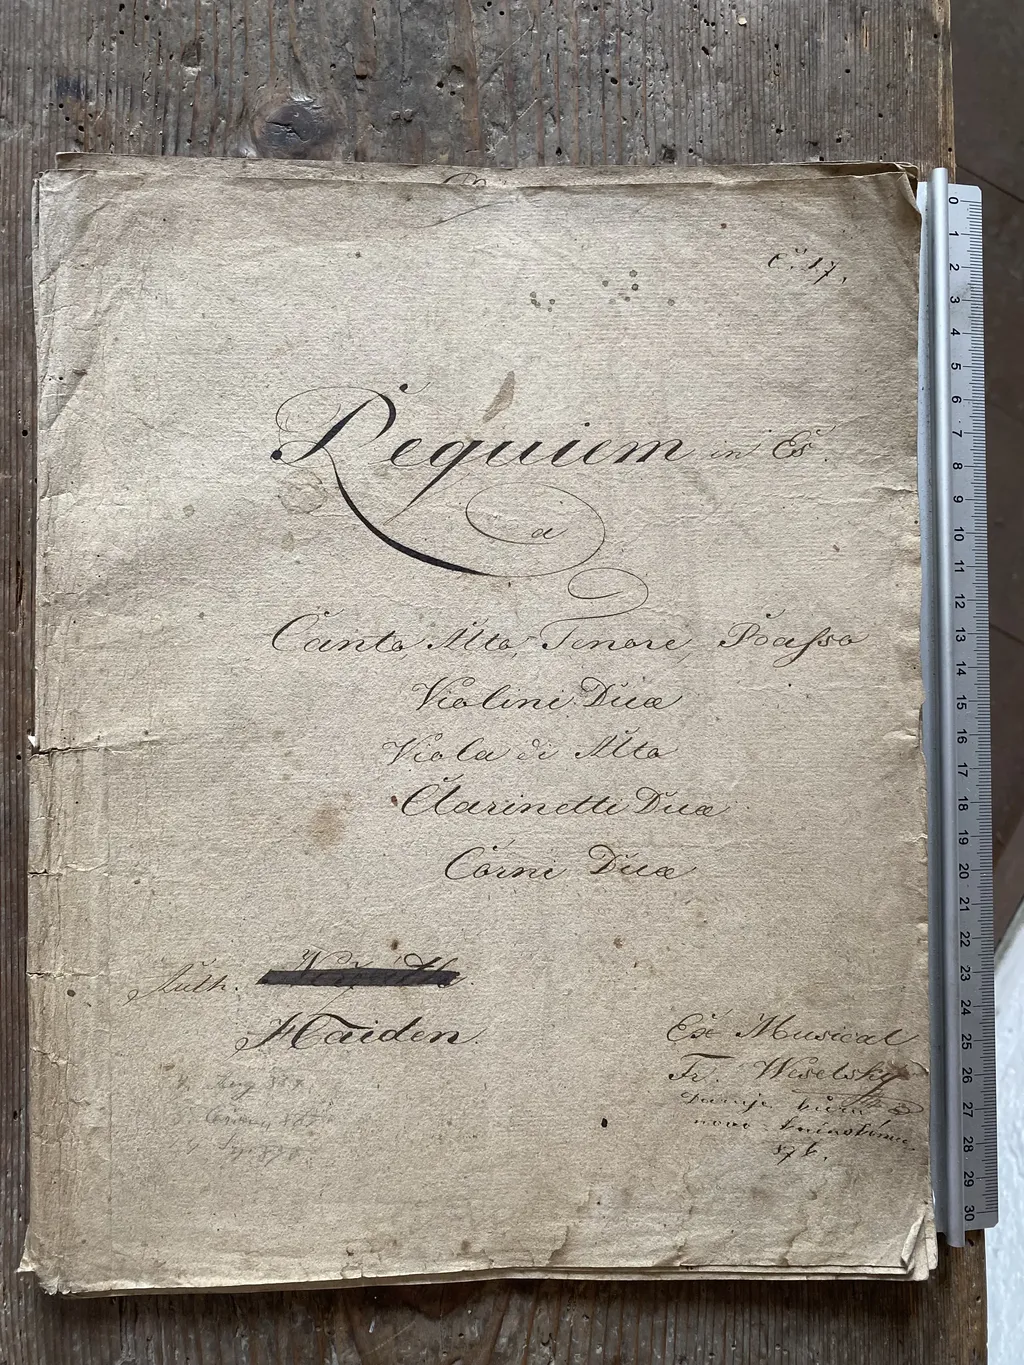 Č. 17.
Requiem in Es.
a
Canto, Alto, Tenore, Basso
Violini Duæ
Viola di Alto
Clarinetti Duæ
Corni Duæ
Auth.
Haiden.
Ex Musical
Fr. Weselsky
0 1 2 3 4 5 6 7 8 9 10 11 12 13 14 15 16 17 18 19 20 21 22 23 24 25 26 27 28 29 30